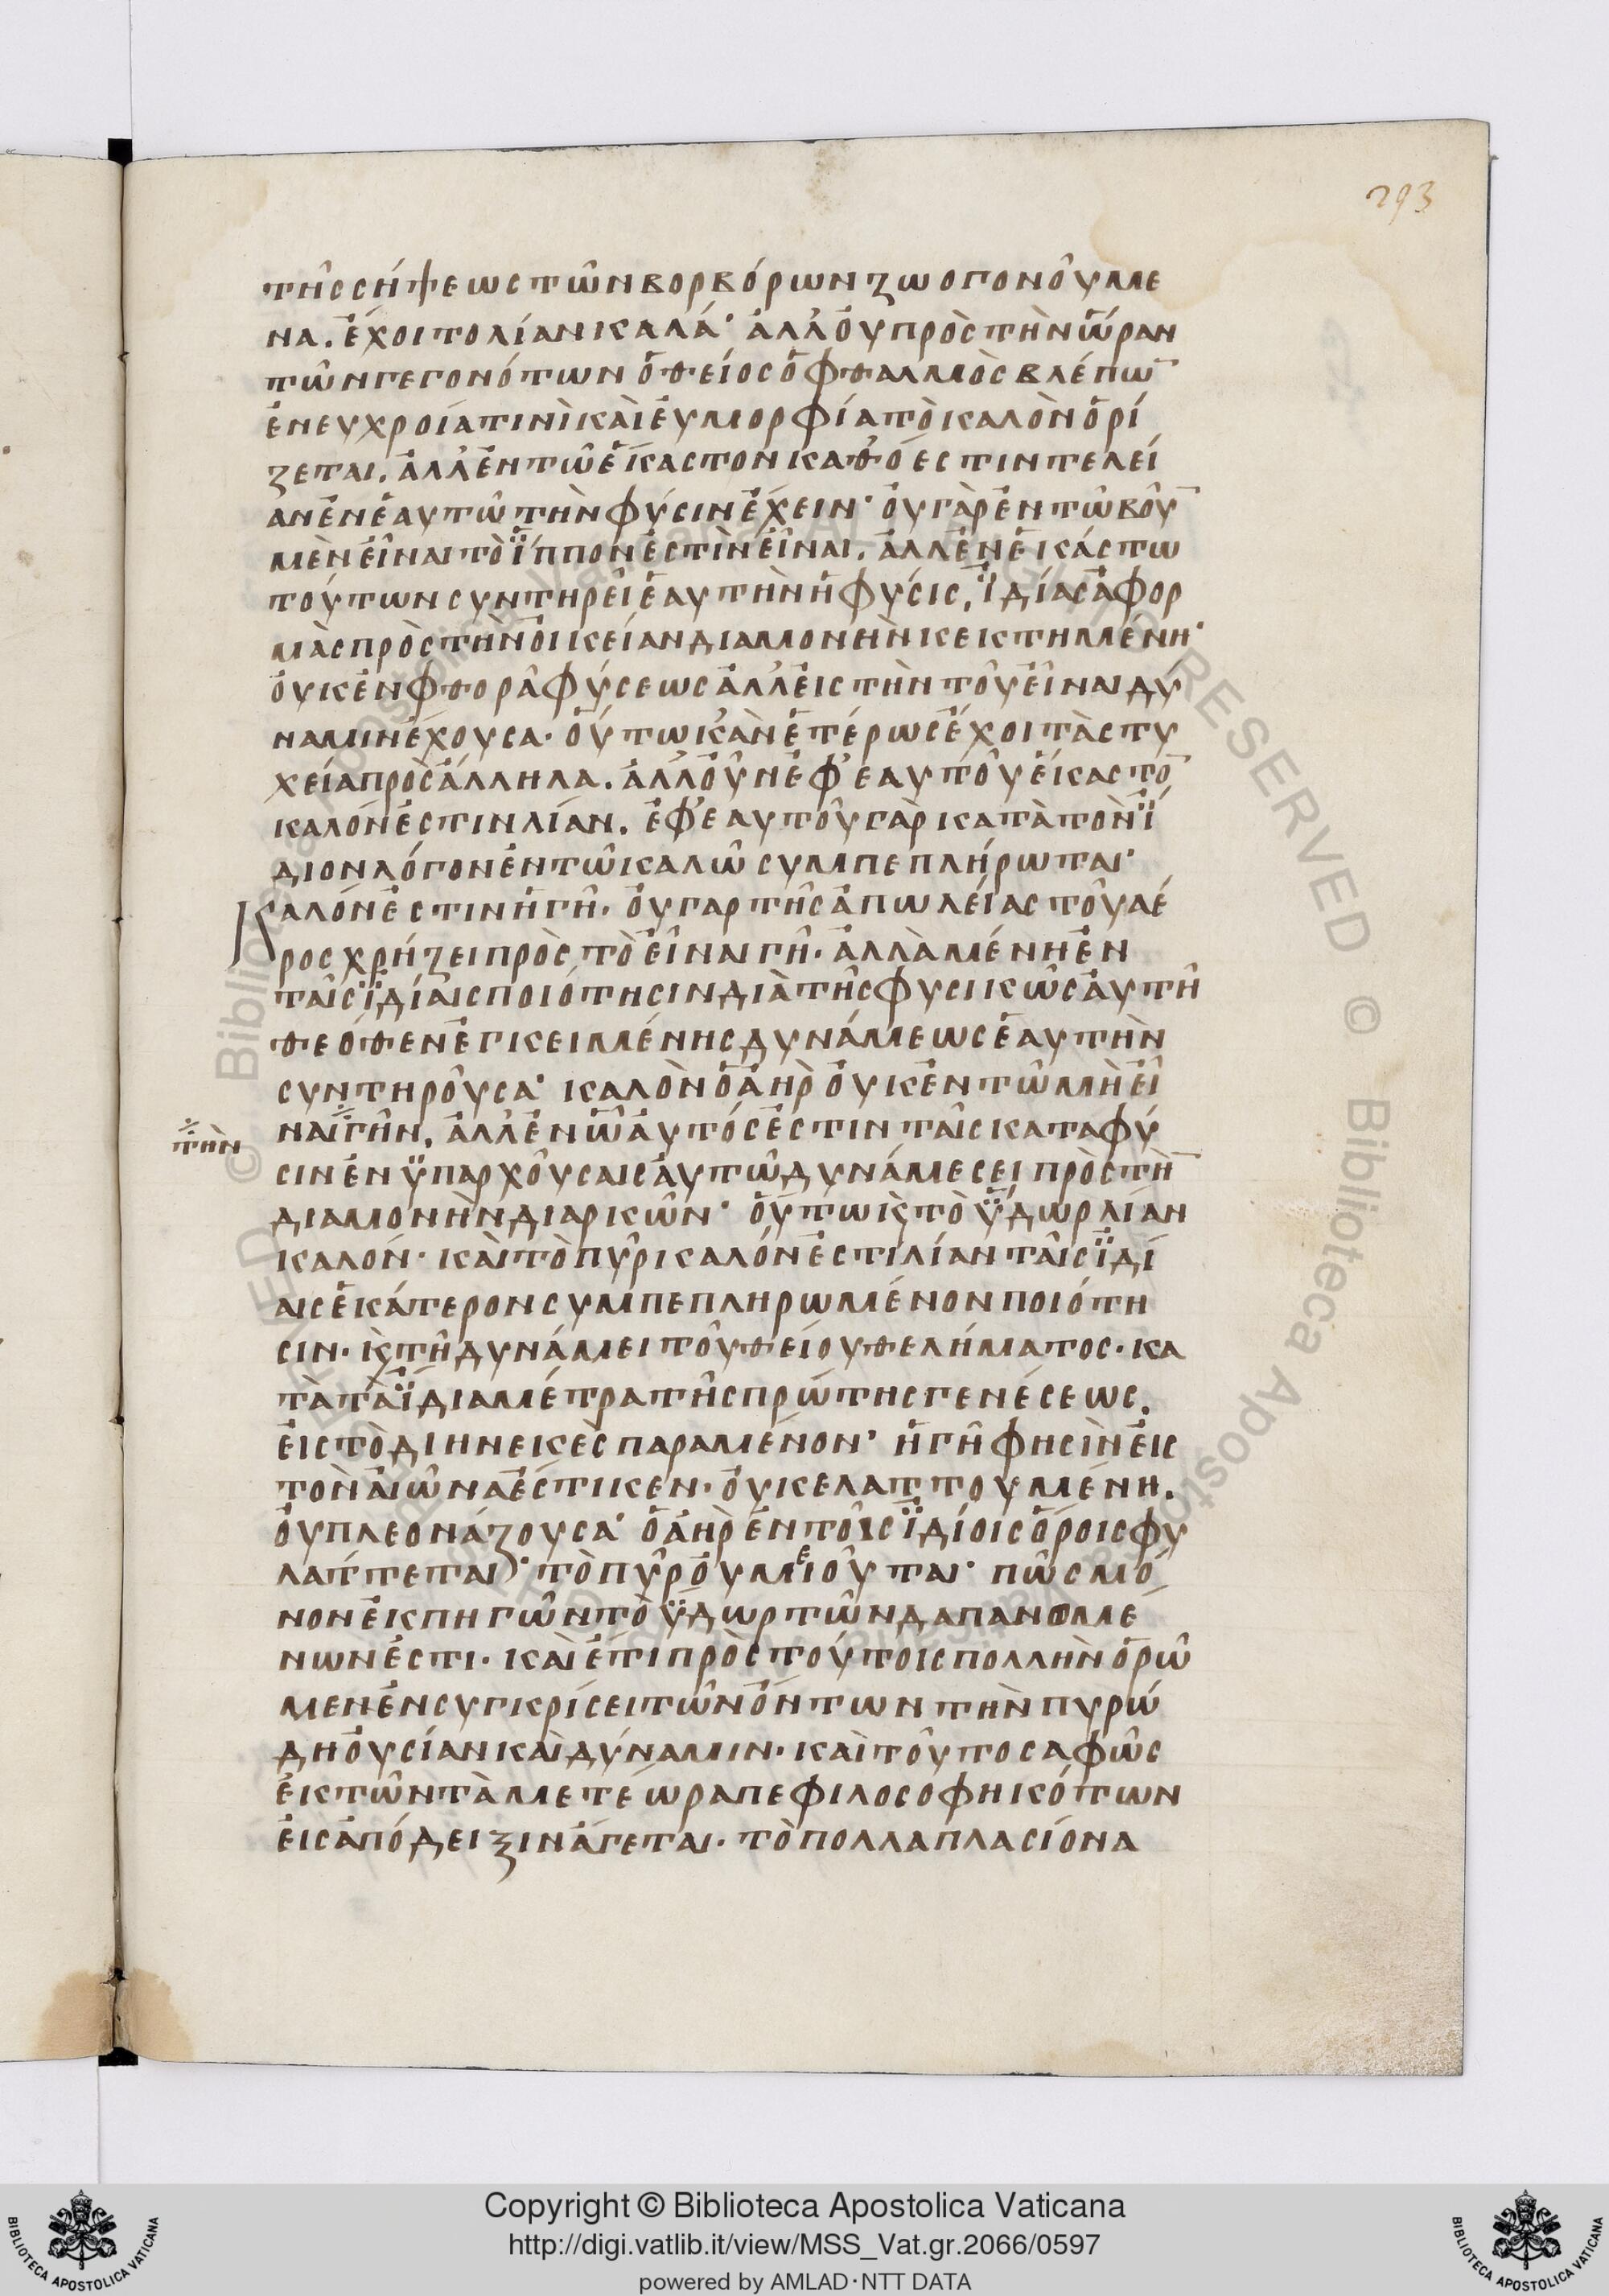 293
τῆς σήψεως τῶν βορβόρων ζωογονούμε
να. ἔχοιτο λίαν καλά· ἀλλ' οὐ πρὸς τὴν ὥραν
τῶν γεγονότων ὁ θεῖος ὀφθαλμὸς βλέπω̅
ἐν ευχροία τινὶ καὶ ἐυμορφία τὸ καλὸν ὁρί
ζεται. ἀλλ' ἐν τῶ ἕκαστον καθό εστιν τελεί
αν ἐν ἑαυτῶ τὴν φύσιν ἔχειν· ὀυ γὰρ ἐν τῶ βοῦ̅
μὲν εἶναι τὸ ἵππον ἐστὶν εἶναι. ἀλλ' ἐν ἑκάστω
τούτων συντηρεῖ ἑαυτὴν ἡ φύσις, ἰδίας ἀφορ
μὰς πρὸς τὴν ὀικείαν διαμονὴν κεκτημένη·
ὀυκ ἐν φθορᾶ φύσεως ἀλλ' ἐις τὴν τοῦ εἶναι δύ
ναμιν ἔχουσα· ὅυτω κἂν ἑτέρως ἔχοι τὰ στυ
χεία πρὸς ἄλληλα. ἀλλ' οὖν ἐφ' ἑαυτοῦ ἕκαστο̅
καλόν ἐστιν λίαν. ἐφ' ἑαυτοῦ γὰρ κατὰ τὸν ἴ
διον λόγον ἐν τῶ καλῶ συμπεπλήρωται·
Καλόν ἐστιν ἡ γῆ· ὀυ γαρ τῆς ἀπωλείας τοῦ αέ
ρος χρήζει πρὸς τὸ εἶναι γῆ· ἀλλὰ μένη ἐν
ταῖς ἰδίαις ποιότησιν διὰ τῆς φυσικῶς ἀυτῆ
θεόθεν ἐγκειμένης δυνάμεως ἑαυτὴν
συντηροῦσα· καλὸν ὁ ἀὴρ ὀυκ ἐν τῶ μὴ εἶ
την
ναι γῆν, ἀλλ' ἐν ὧ ἀυτός ἐστιν ταῖς κατα φύ
σιν ἐνυπαρχούσαις ἀυτῶ δυνάμεσει πρὸς τὴ̅
διαμονὴν διαρκῶν· ὅυτω κ̀ τὸ ὕδωρ λίαν
καλόν· καὶ τὸ πῦρ καλόν ἐστι λίαν ταῖς ἰδί
αις ἑκάτερον συμπεπληρωμένον ποιότη
σιν· κ̀ τῆ δυνάμει τοῦ θείου θελήματος· κα
τὰ τὰ ἴδια μέτρα τῆς πρώτης γενέσεως.
ἐις τὸ διηνεκὲς παραμένον· ἡ γῆ φησὶν ἐις
τὸν ἀιῶνα ἕστικεν· ὀυκ ελαττουμένη.
ὀυ πλεονάζουσα· ὁ ἀὴρ ἐν τοῖς ἰδίοις ὅροις φυ
λάττεται· τὸ πῦρ ὀυ μειοῦται· πῶς μό
νον ἐκ πηγῶν τὸ ὕδωρ τῶν δαπανομέ
νων ἐστι· καὶ ἔτι πρὸς τούτοις πολλὴν ὁρῶ
μεν ἐν συγκρίσει τῶν ὄντων τὴν πυρώ
δη ὀυσίαν καὶ δύναμιν· καὶ τοῦτο σαφῶς
ἐκ τῶν τὰ μετέωρα πεφιλοσοφηκότων
ἐις ἀπόδειξιν ἄγεται· τὸ πολλαπλασίονα
Copyright © Biblioteca Apostolica Vaticana
http://digi.vatlib.it/view/MSS_Vat.gr.2066/0597
powered by AMLAD·NTT DATA
BIBLIOTECA APOSTOLICA VATICANA
BIBLIOTECA APOSTOLICA VATICANA